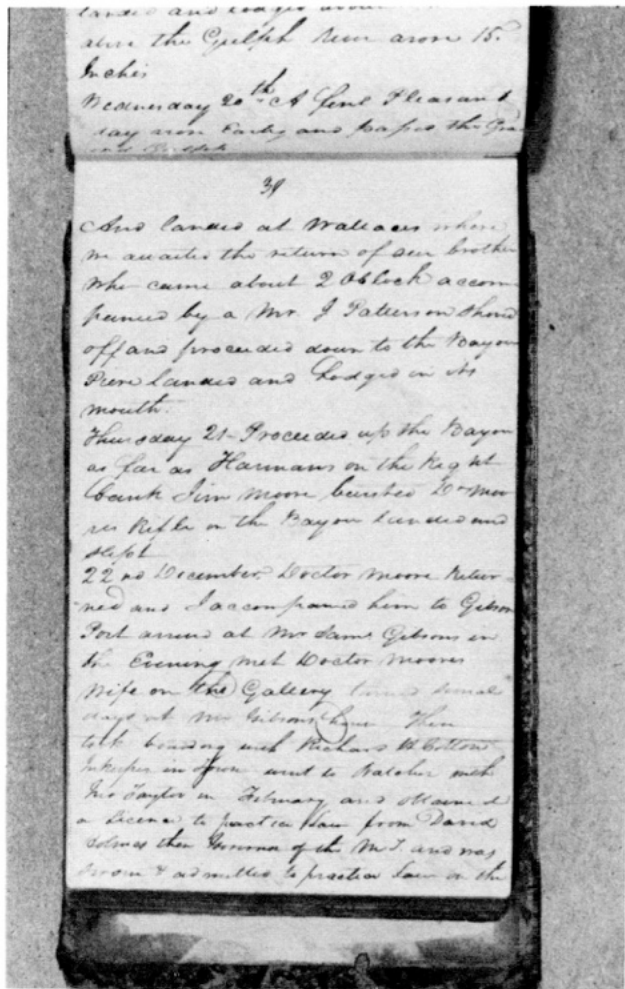 landed and lodged
above the Gulph
15.
Inches
Wednesday 20th A fine Pleasant
day and passed the
39
And landed at Wallaces where
we awaited the return of our brother
who came about 2 OClock accom
panied by a Mr. J Patterson Shoved
off and proceeded down to the Bayou
Piere landed and Lodged in its
mouth.
Thursday 21- Proceeded up the Bayou
as far as Harmans on the Right
bank Jim Moore bursted Dr Moo
res Rifle on the Bayou landed and
slept
22nd December. Doctor Moore Retur-
ned and I accompanied him to Gibson
Port arrived at Mr Saml Gibsons in
the Evening met Doctor Moores
Wife on the Gallery
days at Mr Gibsons here Then
took boarding with Richard M Cotton
Inkeeper in Town went to Natchez with
Jno Taylor in February and obtained
a Licence to practice Law from David
Holmes then Governor of the M.T. and was
sworn & admitted to practice Law in the